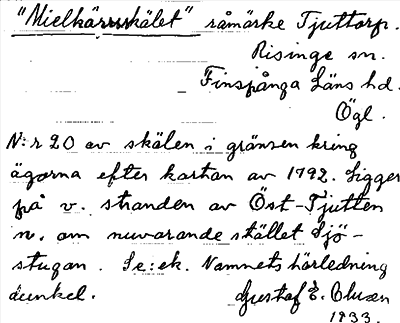 "Mielkärrskälet" råmärke Tjuttorp.
Risinge sn.
Finspånga Läns hd.
Ögl.
N:r 20 av skälen i gränsen kring
ägorna efter kartan av 1792. Ligger
på v. stranden av Öst-Tjutten
n. om nuvarande stället Sjö-
stugan. Se: ek. Namnets härledning
dunkel. Gustaf E. Olsson
1933.